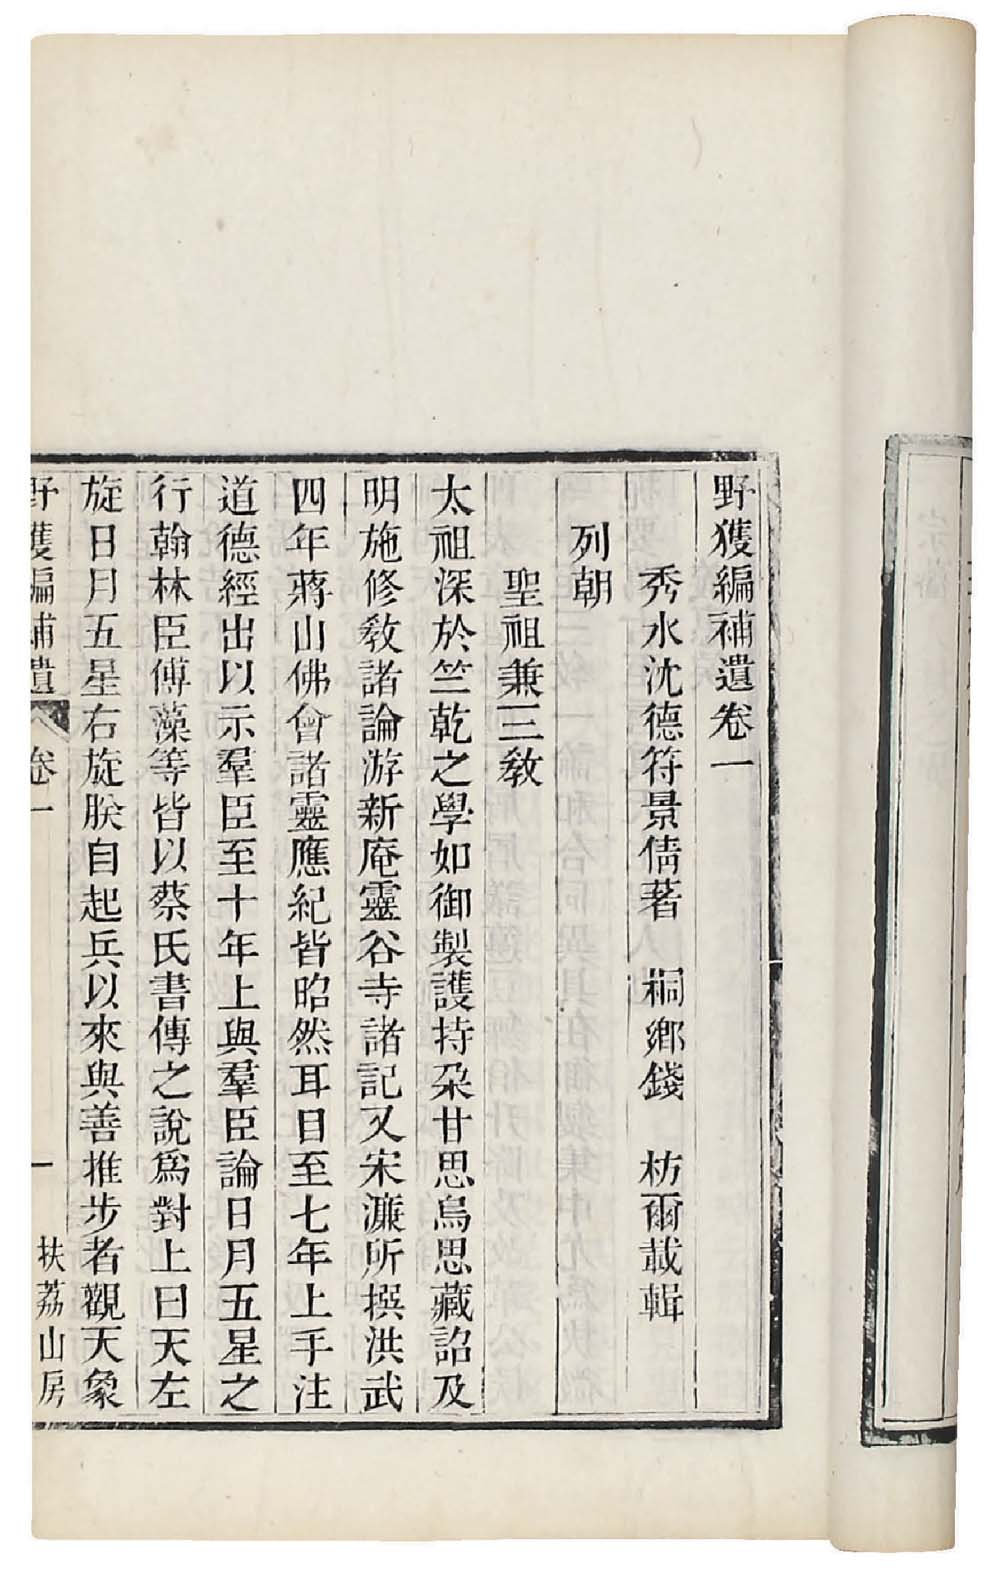 野獲編補遺卷一
秀水沈德符景倩著 桐鄉錢 枋爾載輯
列朝
聖祖兼三敎
太祖深於竺乾之學如御製護持朶甘思烏思藏詔及
明施修敎諸論游新庵靈谷寺諸記又宋濂所撰洪武
四年蔣山佛會諸靈應紀皆昭然耳目至七年上手注
道德經出以示羣臣至十年上與羣臣論日月五星之
行翰林臣傅藻等皆以蔡氏書傳之說爲對上曰天左
旋日月五星右旋朕自起兵以來與善推步者觀天象
野獲編補遺 卷一 一 扶荔山房